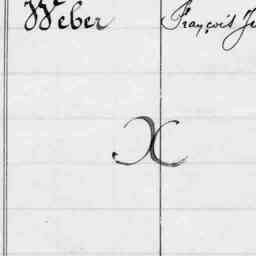 Weber François
X